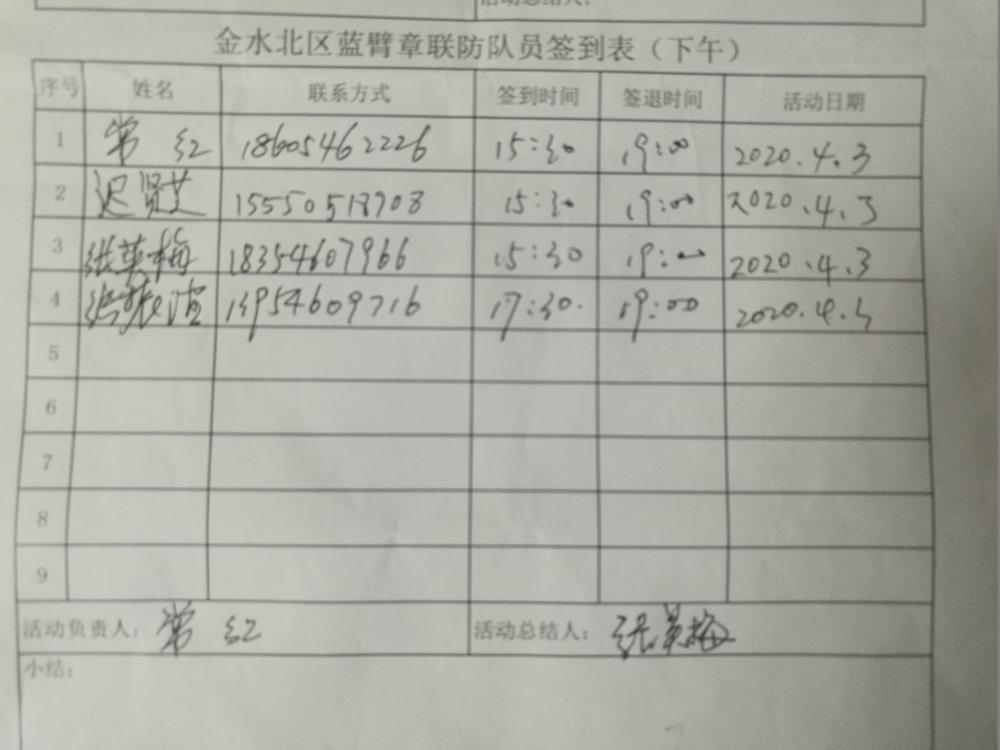 活动总结人：
金水北区蓝臂章联防队员签到表（下午）
序号 姓名 联系方式 签到时间 签退时间 活动日期
1 常红 18605462226 15:30 19:00 2020.4.3
2 迟贤艾 15550518908 15:30 19:00 2020.4.3
3 张英梅 18354607966 15:30 19:00 2020.4.3
4 13954609716 17:30. 19:00 2020.4.3
5
6
7
8
9
活动负责人：常红 活动总结人：张英梅
小结：